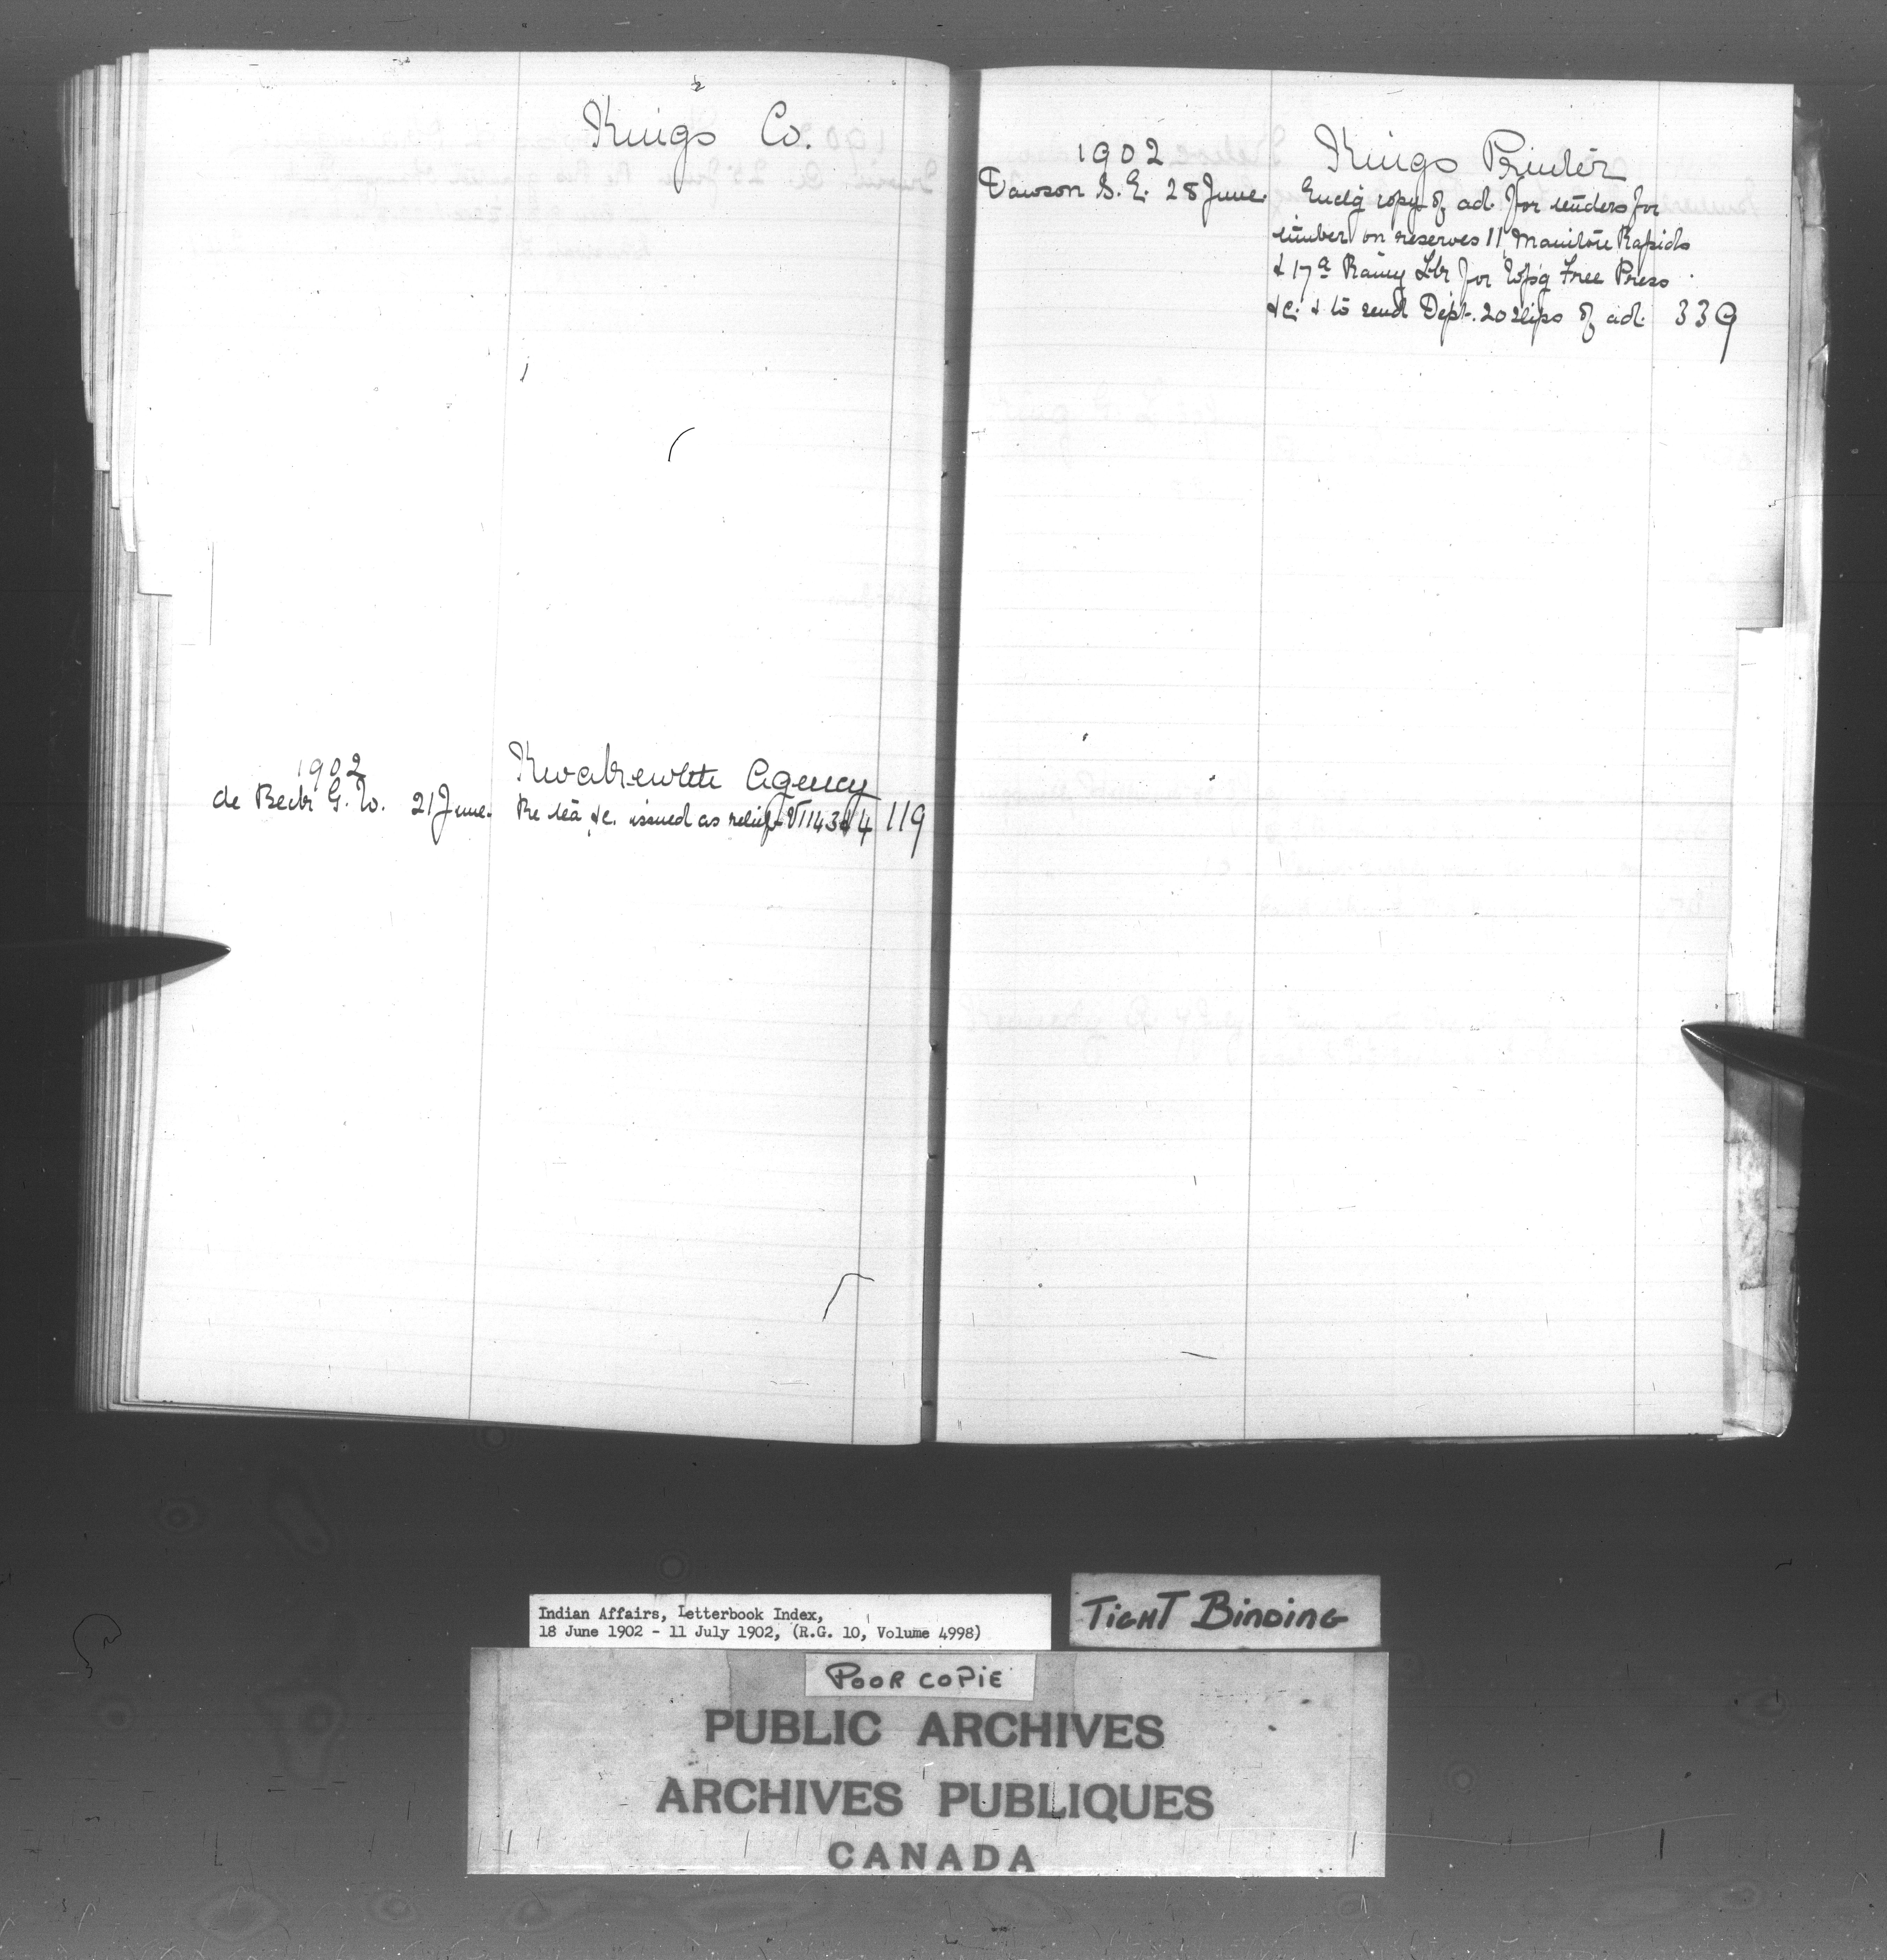 Kings Co.
1902
Kwakewlth Agency
de Beck G. W. 21 June. Re tea &c. issued as relief V1143&4 119
1902
Kings Printer
Dawson S. E. 28 June. Enclg copy of ad. for tenders for
timber on reserves 11, Manitou Rapids
& 17a Rainy Lk for Wpg Free Press
&c. & to send Dept. 20 slips of ad. 339
Indian Affairs, Letterbook Index,
18 June 1902 - 11 July 1902, (R.G. 10, Volume 4998)
TIGHT BINDING
POOR COPIE
PUBLIC ARCHIVES
ARCHIVES PUBLIQUES
CANADA